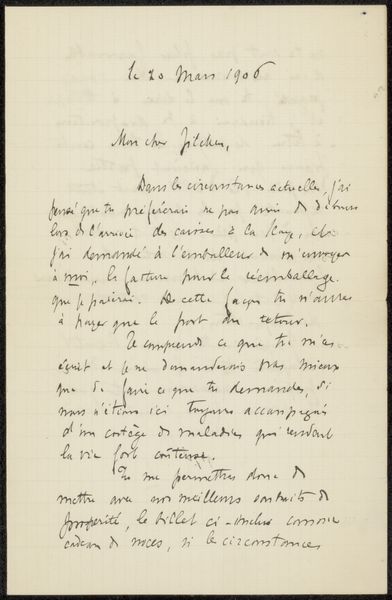 le 20 Mars 1906
Mon cher Zilcken,
Dans les circonstances actuelles, j'ai
pensé que tu préférerais ne pas avoir de débours
lors de l'arrivée des caisses à La Haye, et
j'ai demandé à l'emballeur de m'envoyer
à moi, la facture pour le réemballage
que je paierai. De cette façon tu n'auras
à payer que le port du retour.
Je comprends ce que tu m'as
écrit et je ne demanderais pas mieux
que de faire ce que tu demandes, si
nous n'étions ici toujours accompagnés
d'un cortège de maladies qui rendent
la vie fort coûteuse.
Tu me permettras donc de
mettre avec nos meilleurs souhaits de
prospérité, le billet ci-inclus comme
cadeau de noces, si les circonstances